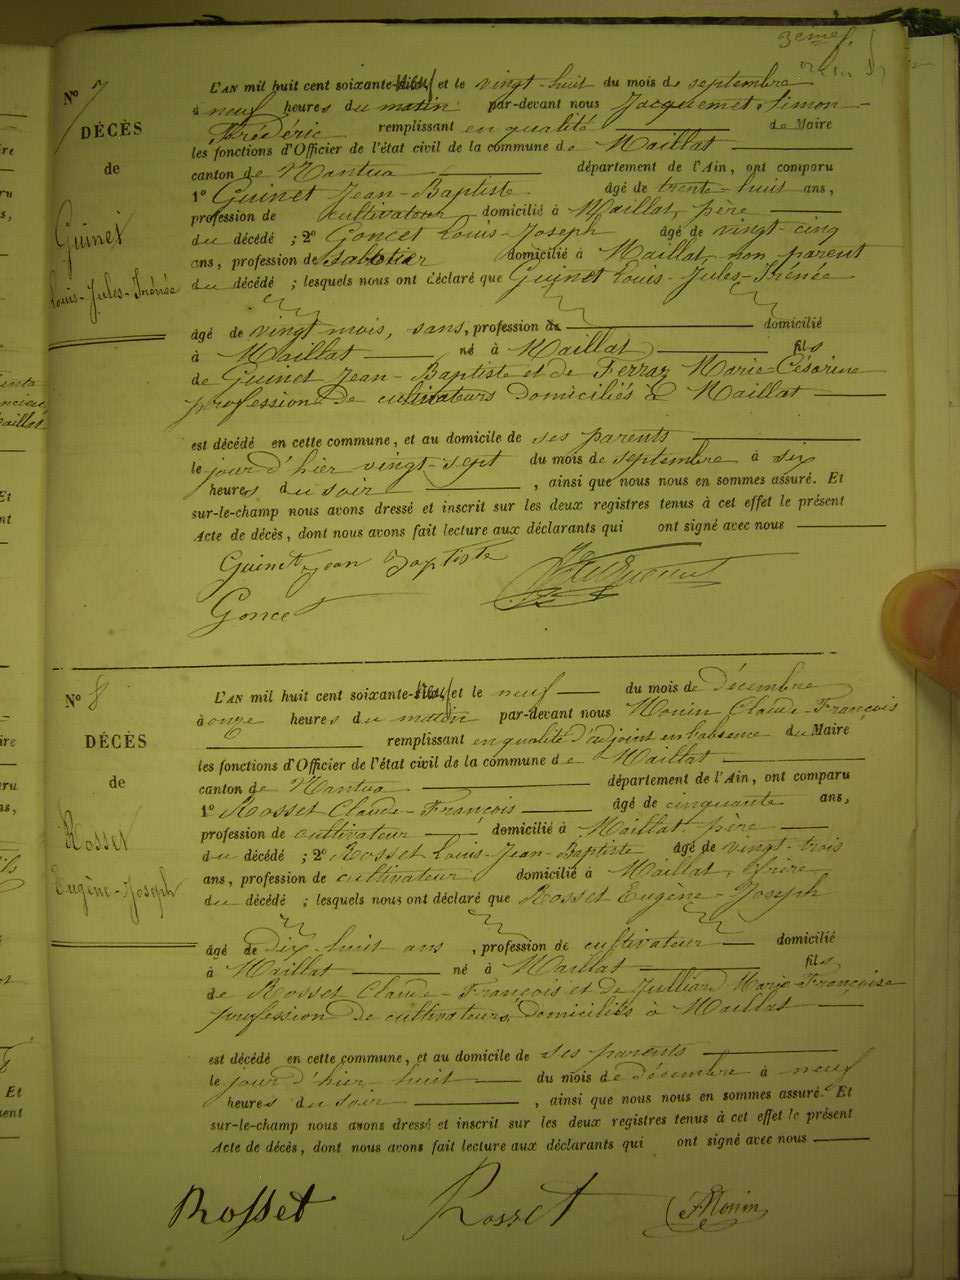 3eme f.
No 7
DÉCÈS
de
Guinet
Louis-Jules-Irénée
L'AN mil huit cent soixante- et le vingt-huit du mois de septembre
à neuf heures du matin par-devant nous Jacquemet Simon
Frédéric remplissant en qualité de Maire
les fonctions d'Officier de l'état civil de la commune de Maillat
canton de Nantua département de l'Ain, ont comparu
1º Guinet Jean-Baptiste âgé de trente-huit ans,
profession de cultivateur domicilié à Maillat, père
du décédé ; 2º Goncet Louis-Joseph âgé de vingt-cinq
ans, profession de Sabotier domicilié à Maillat, non parent
du décédé ; lesquels nous ont déclaré que Guinet Louis-Jules-Irénée
âgé de vingt mois, sans, profession de domicilié
à Maillat né à Maillat fils
de Guinet Jean-Baptiste et de Ferraz Marie-Césarine
profession de cultivateurs domiciliés à Maillat
est décédé en cette commune, et au domicile de ses parents
le jour d'hier vingt-sept du mois de septembre à six
heures du soir , ainsi que nous nous en sommes assuré. Et
sur-le-champ nous avons dressé et inscrit sur les deux registres tenus à cet effet le présent
Acte de décès, dont nous avons fait lecture aux déclarants qui ont signé avec nous
Guinet jean Baptiste
Goncet
No 8
DÉCÈS
de
Rosset
Eugène-Joseph
L'AN mil huit cent soixante- et le neuf du mois de Décembre
à onze heures du matin par-devant nous Monin Claude-François
remplissant en qualité d'adjoint en l'absence du Maire
les fonctions d'Officier de l'état civil de la commune de Maillat
canton de Nantua département de l'Ain, ont comparu
1º Rosset Claude-François âgé de cinquante ans,
profession de cultivateur domicilié à Maillat père
du décédé ; 2º Rosset Louis-Jean-Baptiste âgé de vingt-trois
ans, profession de cultivateur domicilié à Maillat, frère
du décédé ; lesquels nous ont déclaré que Rosset Eugène-Joseph
âgé de dix-huit ans , profession de cultivateur domicilié
à Maillat né à Maillat fils
de Rosset Claude-François et de Julliard Marie-Françoise
profession de cultivateurs, domiciliés à Maillat
est décédé en cette commune, et au domicile de ses parents
le jour d'hier huit du mois de décembre à neuf
heures du soir , ainsi que nous nous en sommes assuré. Et
sur-le-champ nous avons dressé et inscrit sur les deux registres tenus à cet effet le présent
Acte de décès, dont nous avons fait lecture aux déclarants qui ont signé avec nous
Rosset Rosset Monin